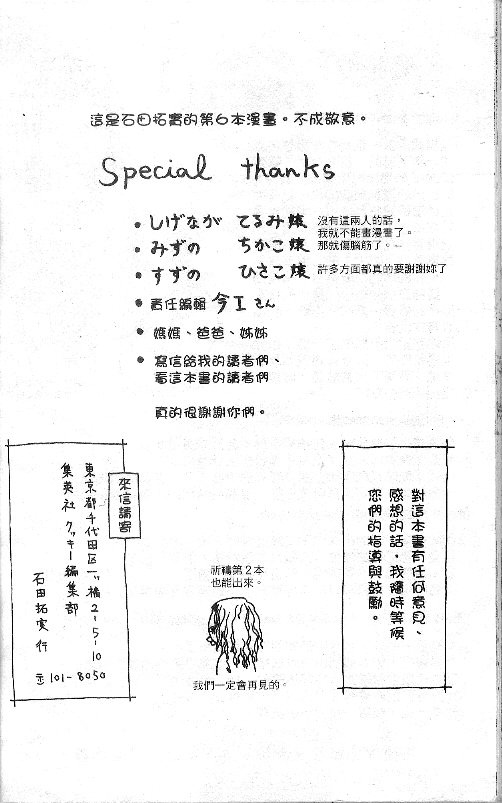 這是石田拓實的第6本漫畫。不成敬意。
Special thanks
• しげなが てるみ様 沒有這兩人的話，
我就不能畫漫畫了。
• みずの ちかこ様 那就傷腦筋了。
• すずの ひさこ様 許多方面都真的要謝謝妳了
• 責任編輯 今工さん
• 媽媽、爸爸、姊姊
• 寫信給我的讀者們、
看這本書的讀者們
真的很謝謝你們。
對這本書有任何意見、
感想的話，我隨時等候
您們的指導與鼓勵。
祈禱第2本
也能出來。
我們一定會再見的。
來信請寄
東京都千代田区一ッ橋2-5-10
集英社 クッキー編集部
石田拓実 行
〒101-8050